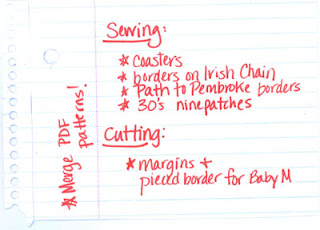 Sewing:
* Coasters
* borders on Irish Chain
* Path to Pembroke borders
* 30's ninepatches
Cutting:
* margins +
pieced border for Baby M
* Merge PDF
patterns!